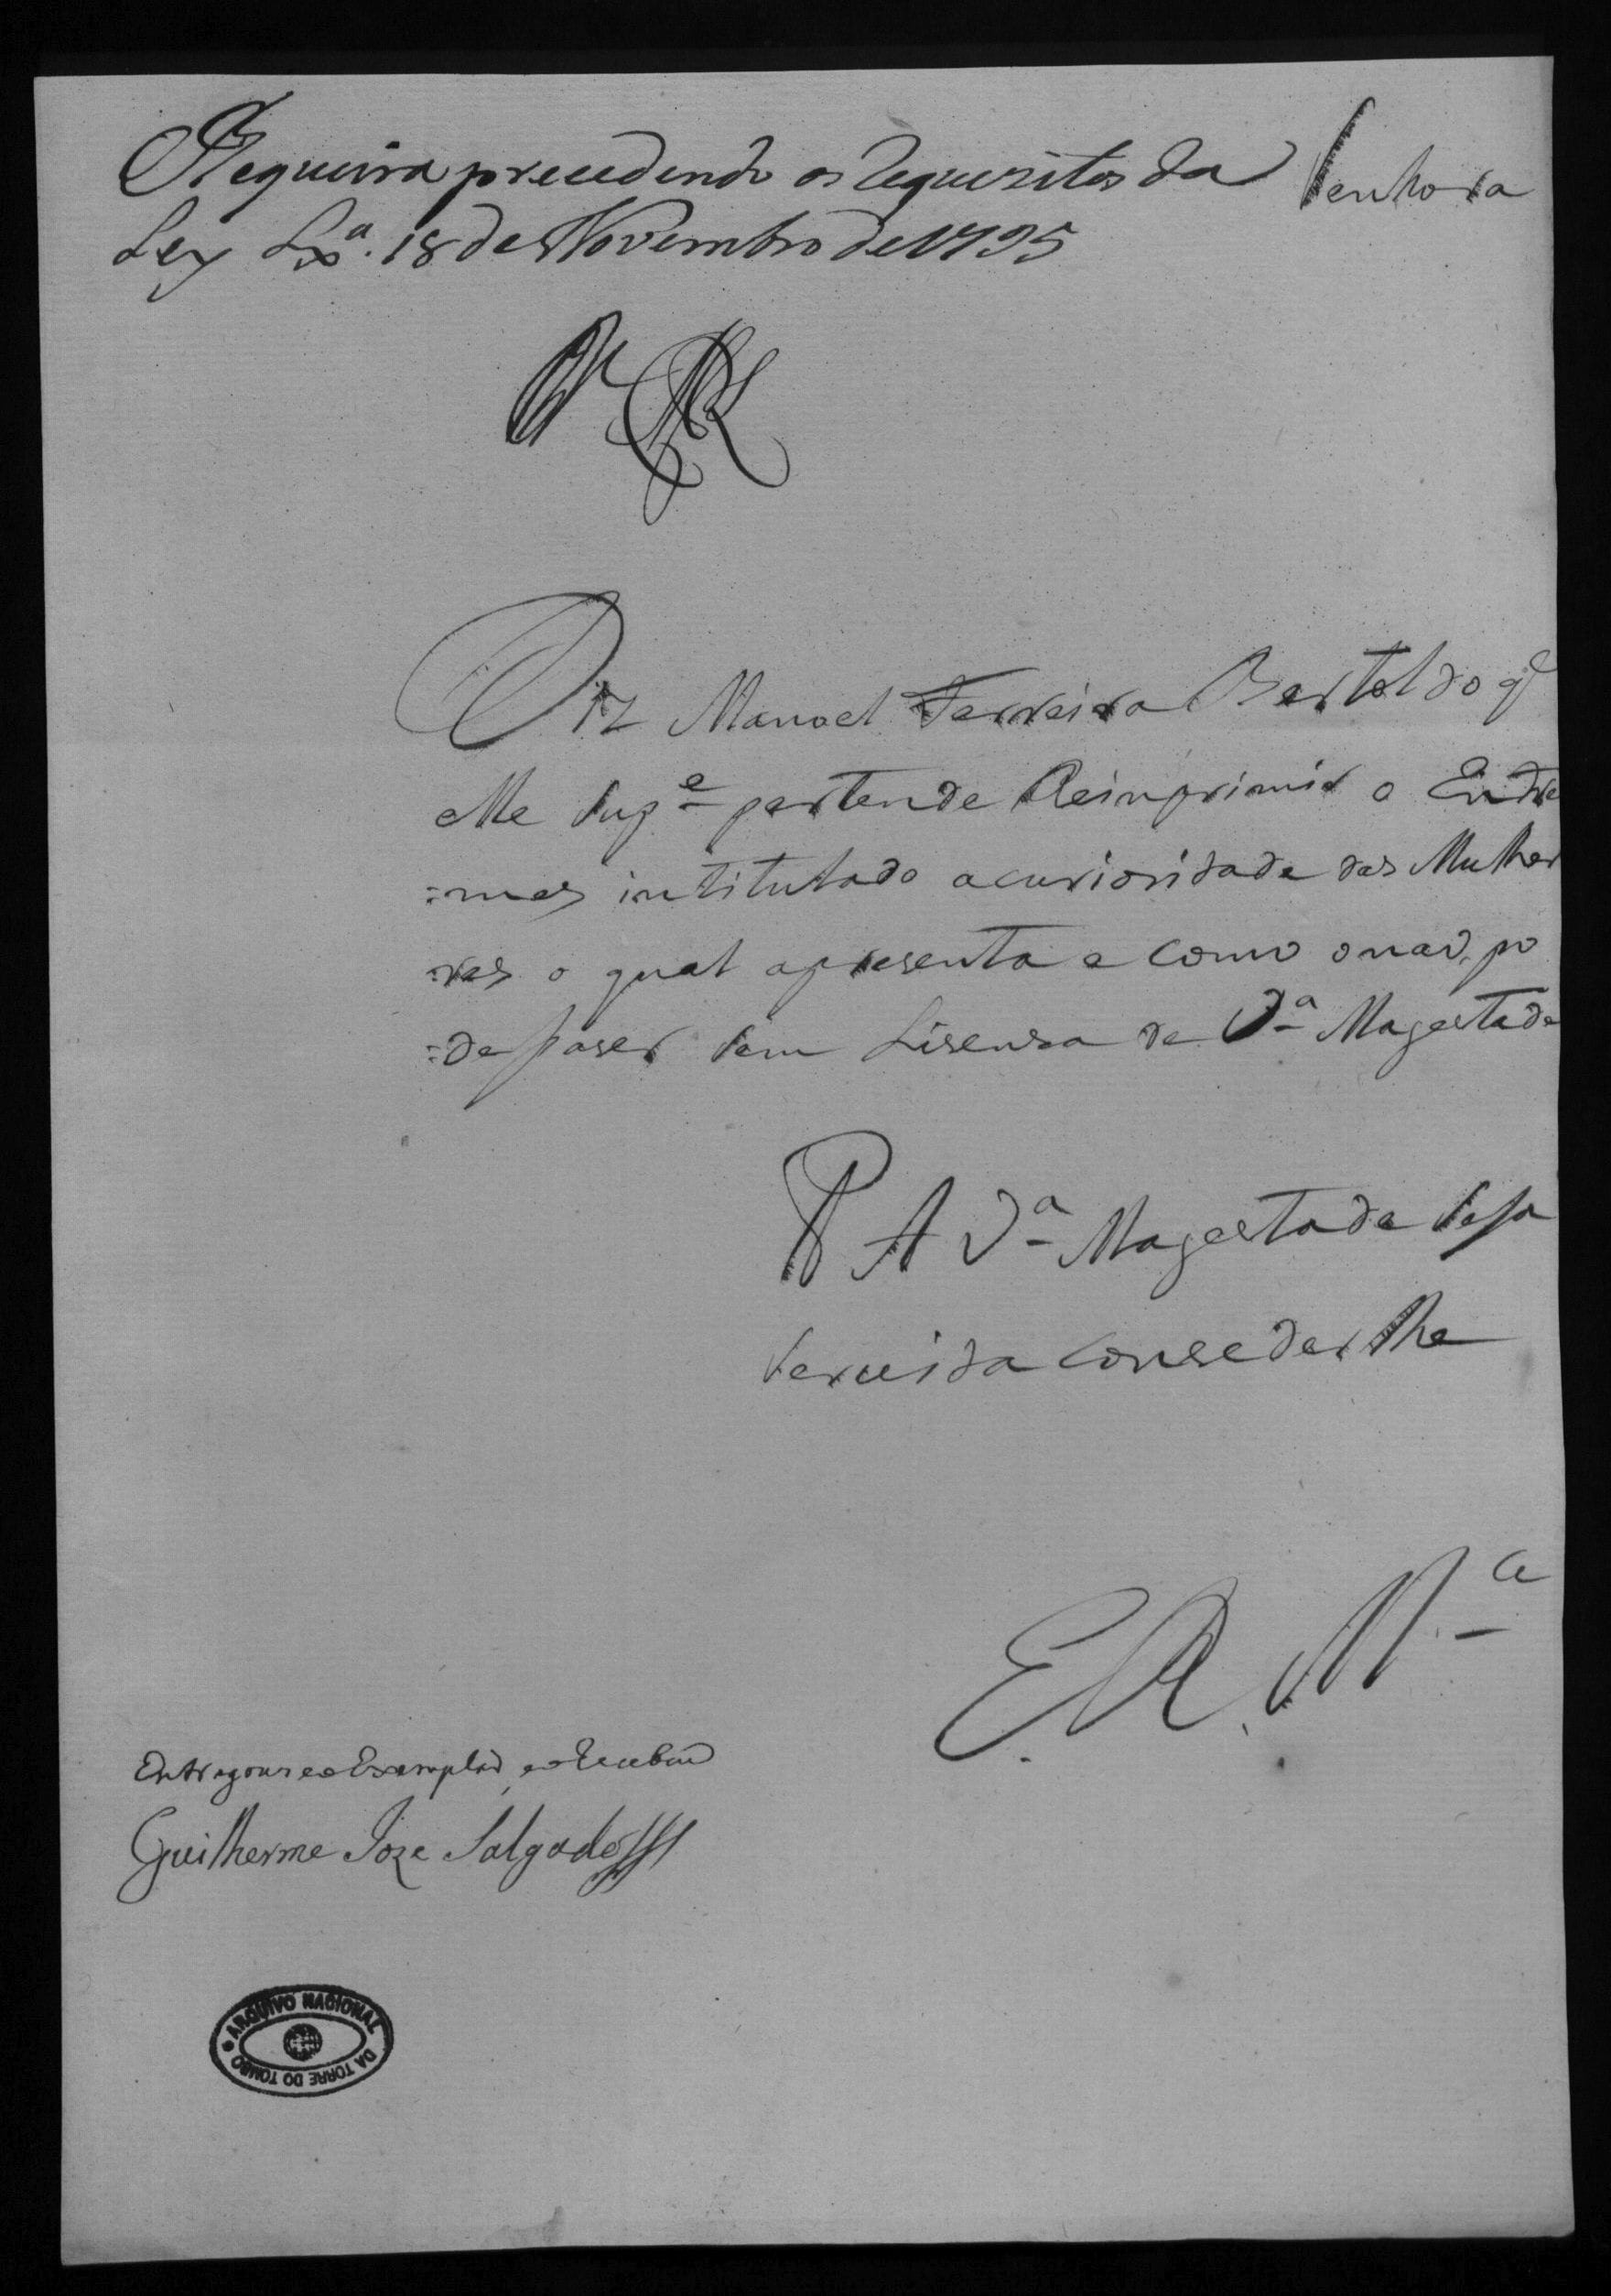 Requeira precedendo os Requezitos da
Ley Lxª. 18 de Novembro de 1795
Senhora
Diz Manoel Ferreira Bertoldo q̃
elle Supᵉ pertende Reinprimir o Entre
=mes intitulado a curiosidade das Mulhe
=res o qual apresenta e como o naõ po
=de faser sem Lisensa de Vª Magestade
P A Vª Magestade seja
servida Conseder lhe
E. R. Mᶜᵉ
Entregouse o Exemplar, e o Recebeu
Guilherme Joze Salgado
ARQUIVO NACIONAL
DA TORRE DO TOMBO